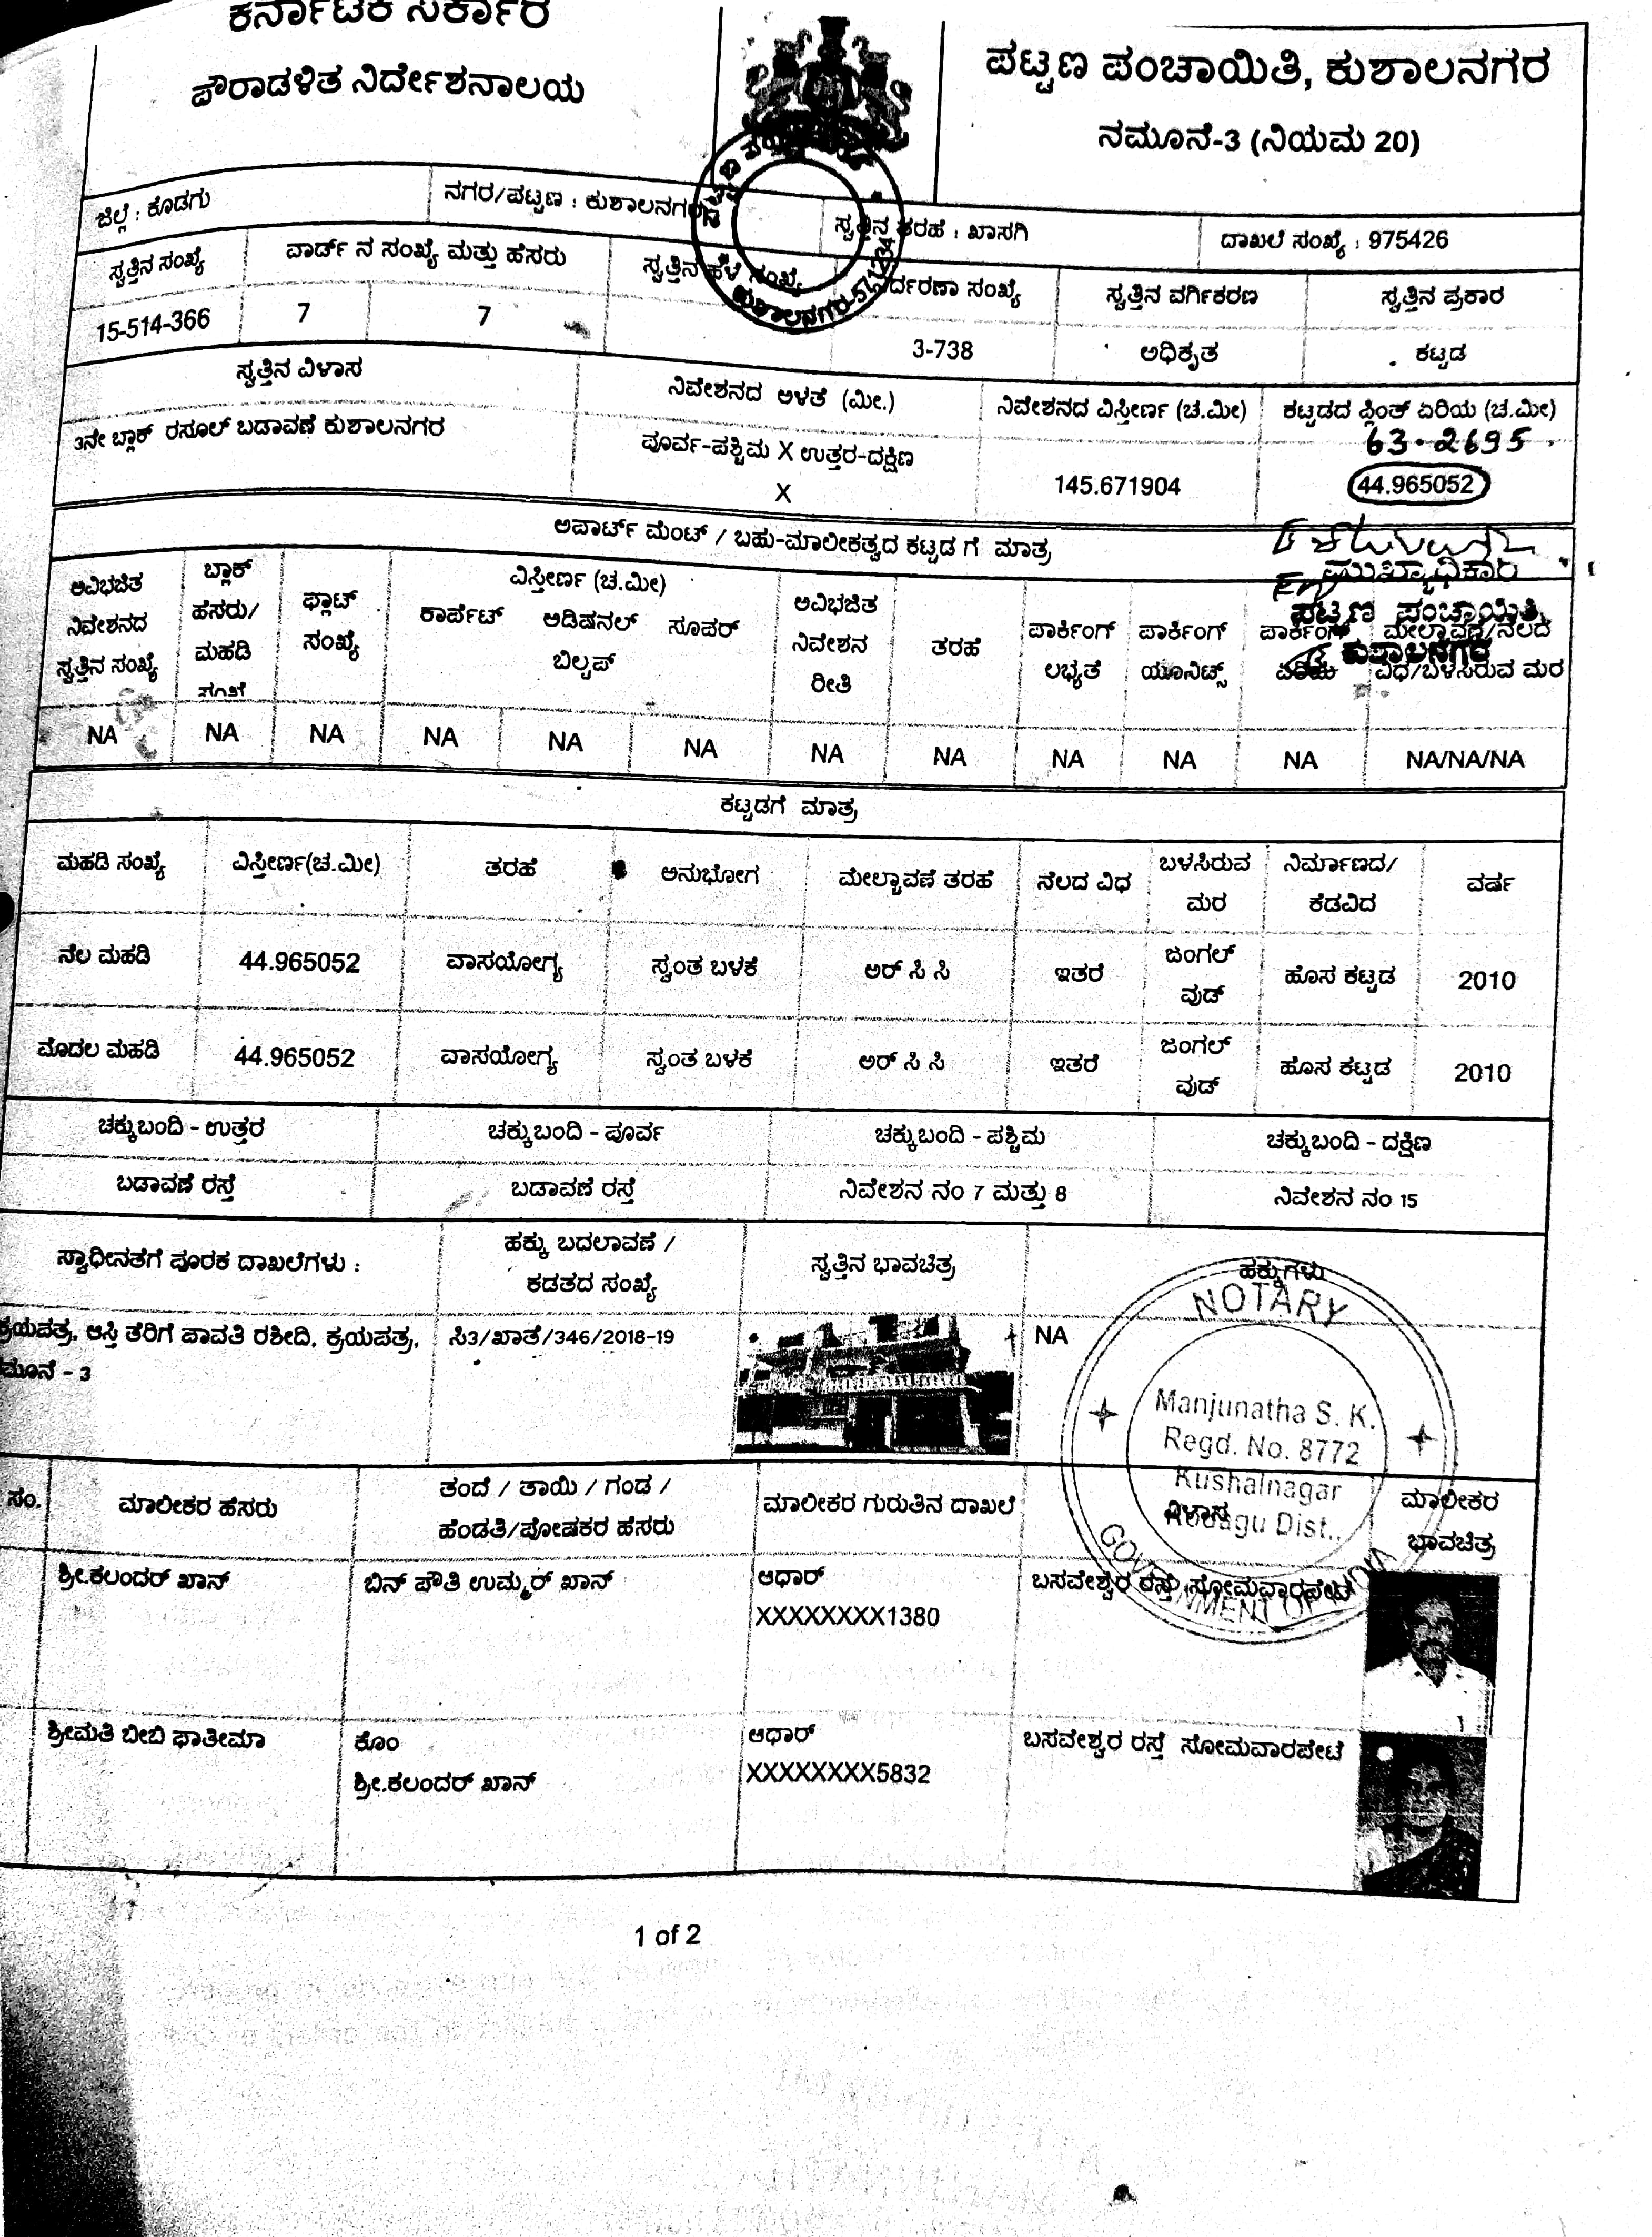 ಕರ್ನಾಟಕ ಸರ್ಕಾರ
ಪೌರಾಡಳಿತ ನಿರ್ದೇಶನಾಲಯ
ಪಟ್ಟಣ ಪಂಚಾಯಿತಿ, ಕುಶಾಲನಗರ
ನಮೂನೆ-3 (ನಿಯಮ 20)
ಜಿಲ್ಲೆ : ಕೊಡಗು
ನಗರ/ಪಟ್ಟಣ : ಕುಶಾಲನಗರ
ಸ್ವತ್ತಿನ ತರಹೆ : ಖಾಸಗಿ
ದಾಖಲೆ ಸಂಖ್ಯೆ : 975426
ಸ್ವತ್ತಿನ ಸಂಖ್ಯೆ
ವಾರ್ಡ್ ನ ಸಂಖ್ಯೆ ಮತ್ತು ಹೆಸರು
ಸ್ವತ್ತಿನ ಹಳೆ ಸಂಖ್ಯೆ
ಸಂಖ್ಯೆ
ಸ್ವತ್ತಿನ ವರ್ಗಿಕರಣ
ಸ್ವತ್ತಿನ ಪ್ರಕಾರ
15-514-366
7
7
3-738
ಅಧಿಕೃತ
ಕಟ್ಟಡ
ಸ್ವತ್ತಿನ ವಿಳಾಸ
ನಿವೇಶನದ ಅಳತೆ (ಮೀ.)
ನಿವೇಶನದ ವಿಸ್ತೀರ್ಣ (ಚ.ಮೀ)
ಕಟ್ಟಡದ ಪ್ಲಿಂತ್ ಏರಿಯ (ಚ.ಮೀ)
3ನೇ ಬ್ಲಾಕ್ ರಸೂಲ್ ಬಡಾವಣೆ ಕುಶಾಲನಗರ
ಪೂರ್ವ-ಪಶ್ಚಿಮ X ಉತ್ತರ-ದಕ್ಷಿಣ
X
145.671904
63.2695
44.965052
ಅಪಾರ್ಟ್ ಮೆಂಟ್ / ಬಹು-ಮಾಲೀಕತ್ವದ ಕಟ್ಟಡ ಗೆ ಮಾತ್ರ
ಮುಖ್ಯಾಧಿಕಾರಿ
ಪಟ್ಟಣ ಪಂಚಾಯಿತಿ,
ಕುಶಾಲನಗರ
ಅವಿಭಜಿತ
ನಿವೇಶನದ
ಸ್ವತ್ತಿನ ಸಂಖ್ಯೆ
ಬ್ಲಾಕ್
ಹೆಸರು/
ಮಹಡಿ
ಸಂಖ್ಯೆ
ಫ್ಲಾಟ್
ಸಂಖ್ಯೆ
ವಿಸ್ತೀರ್ಣ (ಚ.ಮೀ)
ಕಾರ್ಪೆಟ್ ಅಡಿಷನಲ್ ಸೂಪರ್
ಬಿಲ್ಟಪ್
ಅವಿಭಜಿತ
ನಿವೇಶನ
ರೀತಿ
ತರಹೆ
ಪಾರ್ಕಿಂಗ್
ಲಭ್ಯತೆ
ಪಾರ್ಕಿಂಗ್
ಯೂನಿಟ್ಸ್
ಪಾರ್ಕಿಂಗ್
ಮೇಲ್ಚಾವಣಿ/ನೆಲದ
ವಿಧ/ಬಳಸಿರುವ ಮರ
NA NA NA NA NA NA NA NA NA NA NA NA/NA/NA
ಕಟ್ಟಡಗೆ ಮಾತ್ರ
ಮಹಡಿ ಸಂಖ್ಯೆ
ವಿಸ್ತೀರ್ಣ(ಚ.ಮೀ)
ತರಹೆ
ಅನುಭೋಗ
ಮೇಲ್ಚಾವಣೆ ತರಹೆ
ನೆಲದ ವಿಧ
ಬಳಸಿರುವ
ಮರ
ನಿರ್ಮಾಣದ/
ಕೆಡವಿದ
ವರ್ಷ
ನೆಲ ಮಹಡಿ 44.965052 ವಾಸಯೋಗ್ಯ ಸ್ವಂತ ಬಳಕೆ ಆರ್ ಸಿ ಸಿ ಇತರೆ ಜಂಗಲ್
ವುಡ್ ಹೊಸ ಕಟ್ಟಡ 2010
ಮೊದಲ ಮಹಡಿ 44.965052 ವಾಸಯೋಗ್ಯ ಸ್ವಂತ ಬಳಕೆ ಆರ್ ಸಿ ಸಿ ಇತರೆ ಜಂಗಲ್
ವುಡ್ ಹೊಸ ಕಟ್ಟಡ 2010
ಚಕ್ಕುಬಂದಿ - ಉತ್ತರ
ಚಕ್ಕುಬಂದಿ - ಪೂರ್ವ
ಚಕ್ಕುಬಂದಿ - ಪಶ್ಚಿಮ
ಚಕ್ಕುಬಂದಿ - ದಕ್ಷಿಣ
ಬಡಾವಣೆ ರಸ್ತೆ
ಬಡಾವಣೆ ರಸ್ತೆ
ನಿವೇಶನ ನಂ 7 ಮತ್ತು 8
ನಿವೇಶನ ನಂ 15
ಸ್ವಾಧೀನತೆಗೆ ಪೂರಕ ದಾಖಲೆಗಳು :
ಹಕ್ಕು ಬದಲಾವಣೆ /
ಕಡತದ ಸಂಖ್ಯೆ
ಸ್ವತ್ತಿನ ಭಾವಚಿತ್ರ
ಹಕ್ಕುಗಳು
ಕ್ರಯಪತ್ರ, ಆಸ್ತಿ ತೆರಿಗೆ ಪಾವತಿ ರಶೀದಿ, ಕ್ರಯಪತ್ರ,
ಮೂನೆ - 3
ಸಿ3/ಖಾತೆ/346/2018-19
NA
NOTARY
Manjunatha S. K.
Regd. No. 8772
Kushalnagar
Kodagu Dist.,
GOVERNMENT OF INDIA
ಸಂ.
ಮಾಲೀಕರ ಹೆಸರು
ತಂದೆ / ತಾಯಿ / ಗಂಡ /
ಹೆಂಡತಿ/ಪೋಷಕರ ಹೆಸರು
ಮಾಲೀಕರ ಗುರುತಿನ ದಾಖಲೆ
ವಿಳಾಸ
ಮಾಲೀಕರ
ಭಾವಚಿತ್ರ
ಶ್ರೀ.ಕಲಂದರ್ ಖಾನ್
ಬಿನ್ ಪೌತಿ ಉಮ್ಮರ್ ಖಾನ್
ಆಧಾರ್
XXXXXXXX1380
ಬಸವೇಶ್ವರ ರಸ್ತೆ ಸೋಮವಾರಪೇಟೆ
ಶ್ರೀಮತಿ ಬೀಬಿ ಫಾತೀಮಾ
ಕೊಂ
ಶ್ರೀ.ಕಲಂದರ್ ಖಾನ್
ಆಧಾರ್
XXXXXXXX5832
ಬಸವೇಶ್ವರ ರಸ್ತೆ ಸೋಮವಾರಪೇಟೆ
1 of 2